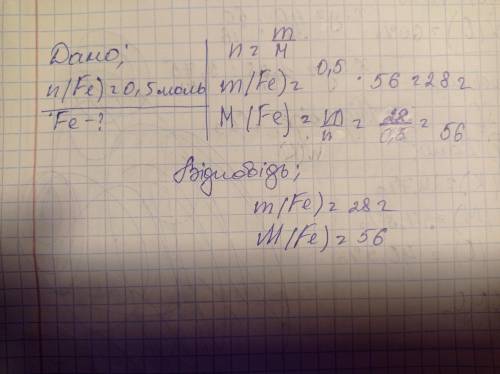 Дано;
n(Fe)=0,5моль
Fe-?
n = m/M
m(Fe)= 0,5 · 56 = 28 г
M(Fe) = m/n = 28/0,5 = 56
Відповідь;
m(Fe) = 28 г
M(Fe) = 56